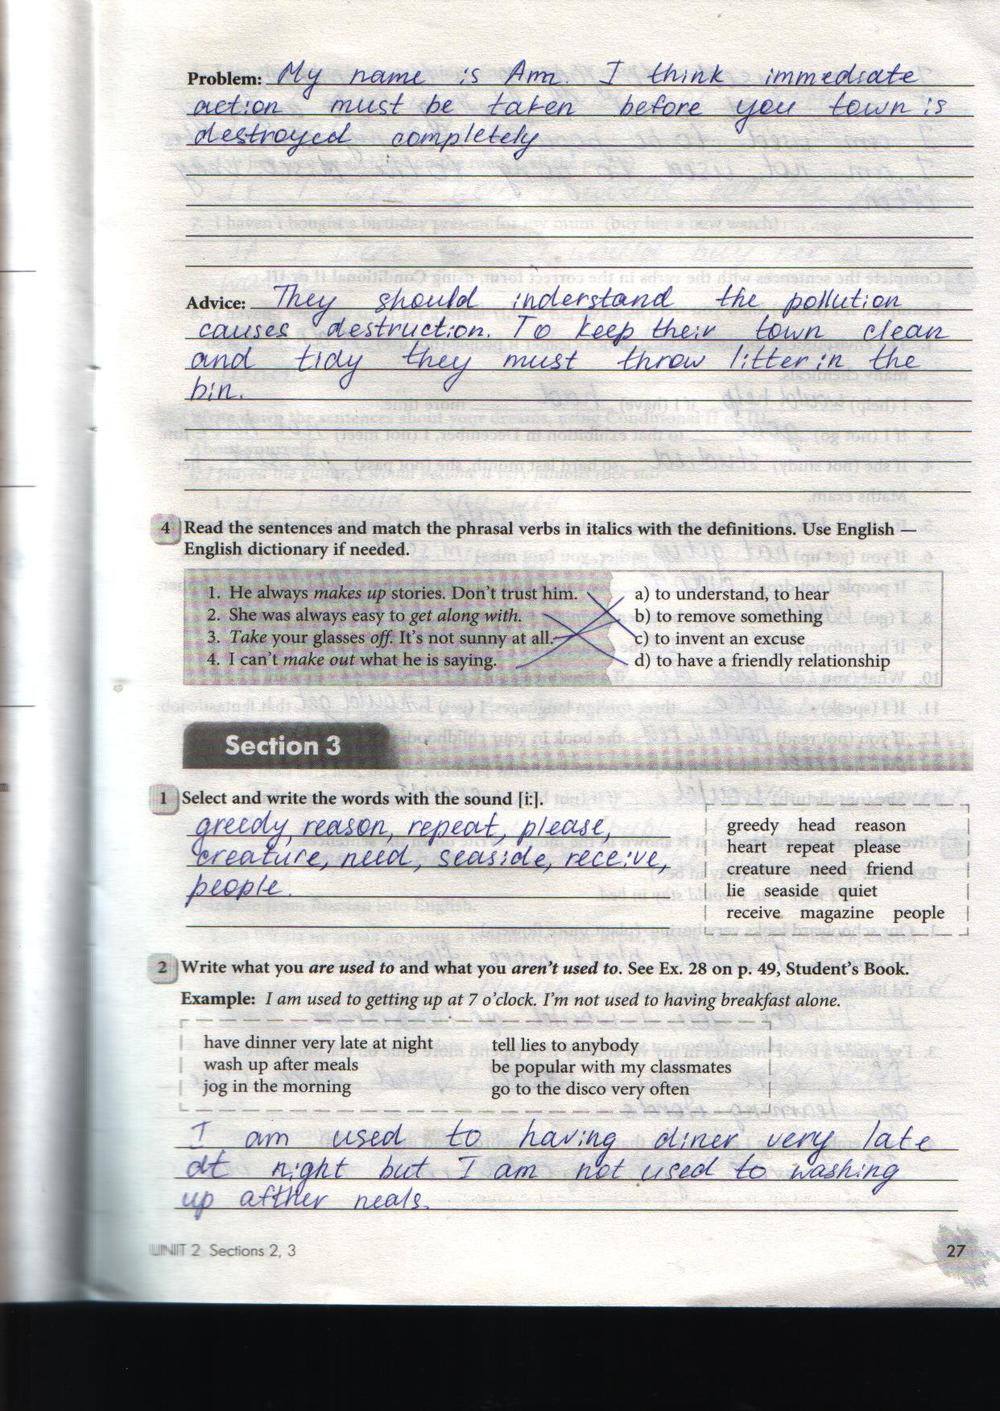 Problem: My name is Ann. I think immediate
action must be taken before you town is
destroyed completely
Advice: They should inderstand the pollution
causes destruction. To keep their town clean
and tidy they must throw litter in the
bin.
4 Read the sentences and match the phrasal verbs in italics with the definitions. Use English —
English dictionary if needed.
1. He always makes up stories. Don't trust him. a) to understand, to hear
2. She was always easy to get along with. b) to remove something
3. Take your glasses off. It's not sunny at all. c) to invent an excuse
4. I can't make out what he is saying. d) to have a friendly relationship
Section 3
1 Select and write the words with the sound [i:].
greedy, reason, repeat, please,
creature, need, seaside, receive,
people.
greedy head reason
heart repeat please
creature need friend
lie seaside quiet
receive magazine people
2 Write what you are used to and what you aren't used to. See Ex. 28 on p. 49, Student's Book.
Example: I am used to getting up at 7 o'clock. I'm not used to having breakfast alone.
have dinner very late at night tell lies to anybody
wash up after meals be popular with my classmates
jog in the morning go to the disco very often
I am used to having diner very late
at night but I am not used to washing
up afther neals.
UNIT 2 Sections 2, 3
27